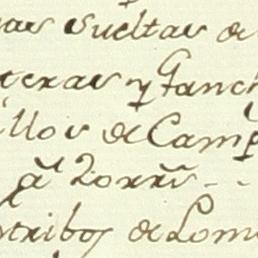 sueltas de
teras y Ganch
illos de Camp
pa Zorrs
stribos de Lom